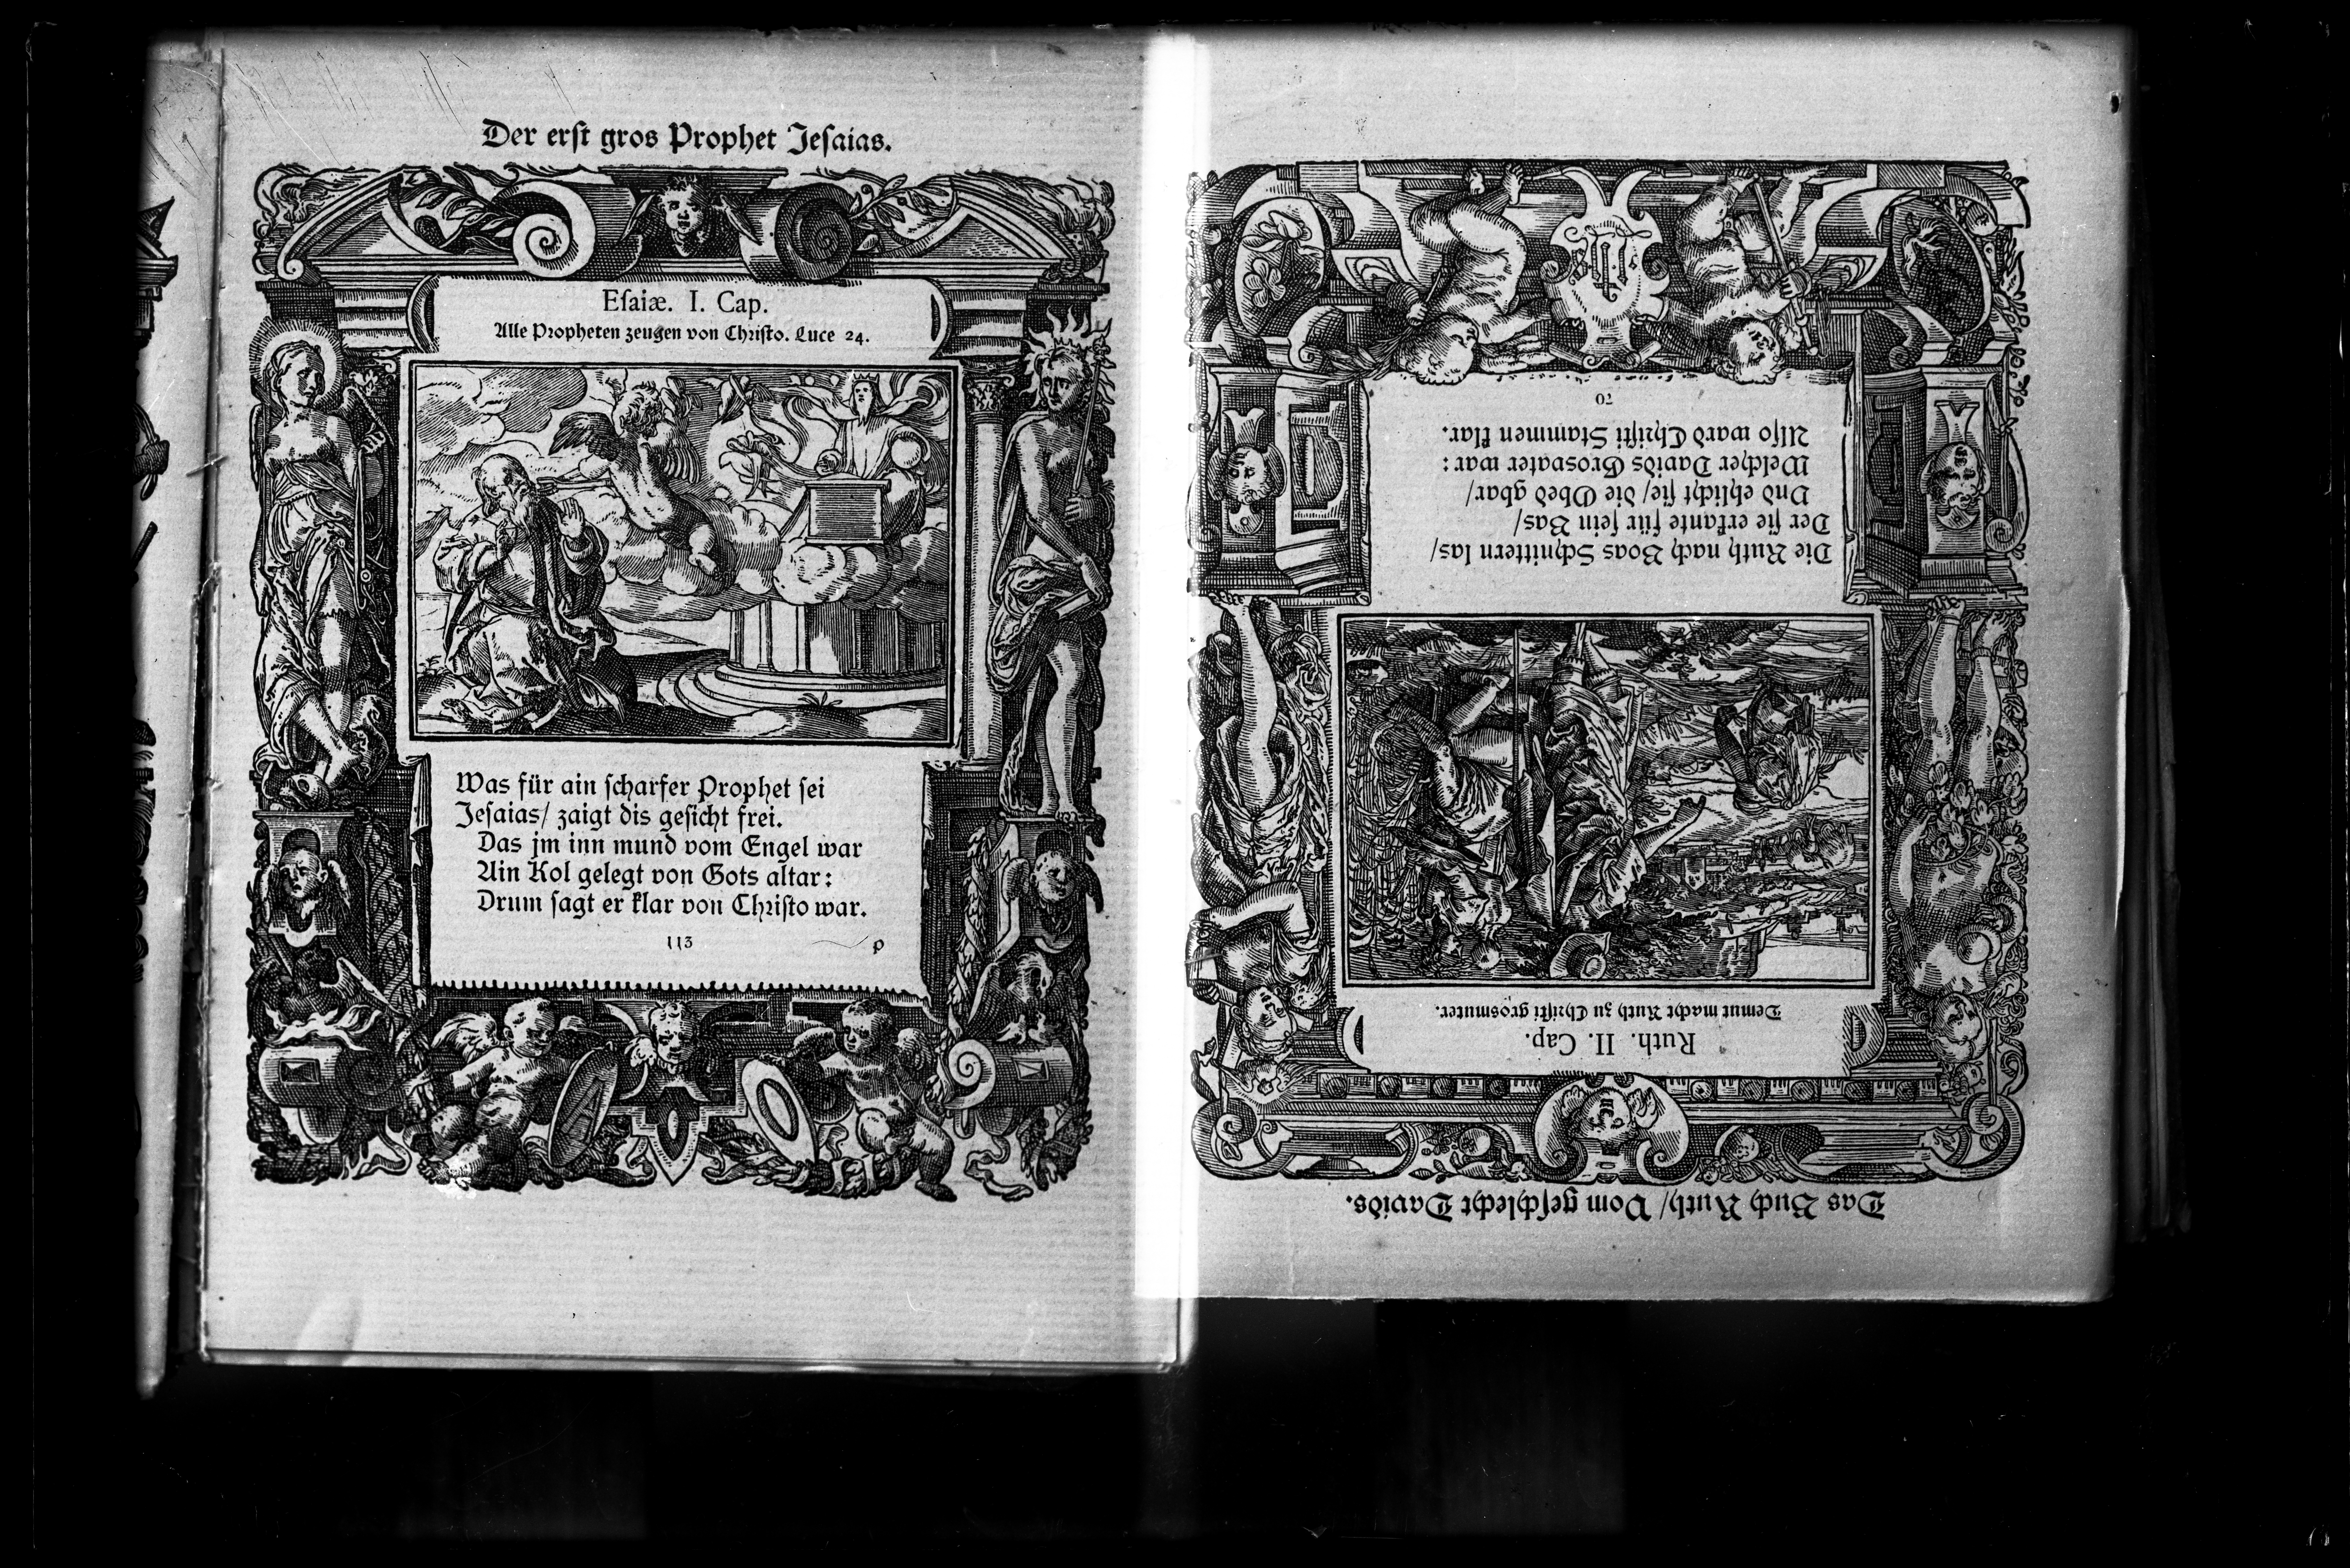 Der erſt gros Prophet Jeſaias.
Eſaiæ. I. Cap.
Alle Propheten zeugen von Chriſto. Luce 24.
Was für ain ſcharfer Prophet ſei
Jeſaias/ zaigt dis geſicht frei.
Das jm inn mund vom Engel war
Ain Kol gelegt von Gots altar:
Drum ſagt er klar von Chriſto war.
113 P
Das Buch Ruth/ Vom geſchlecht Davids.
Ruth. II. Cap.
Demut macht Ruth zu Chriſti grosmuter.
Die Ruth nach Boas Schnittern las/
Der ſie erkante für ſein Bas/
Vnd ehlicht ſie/ die Obed gbar/
Welcher Davids Grosvater war:
Alſo ward Chriſti Stammen klar.
70